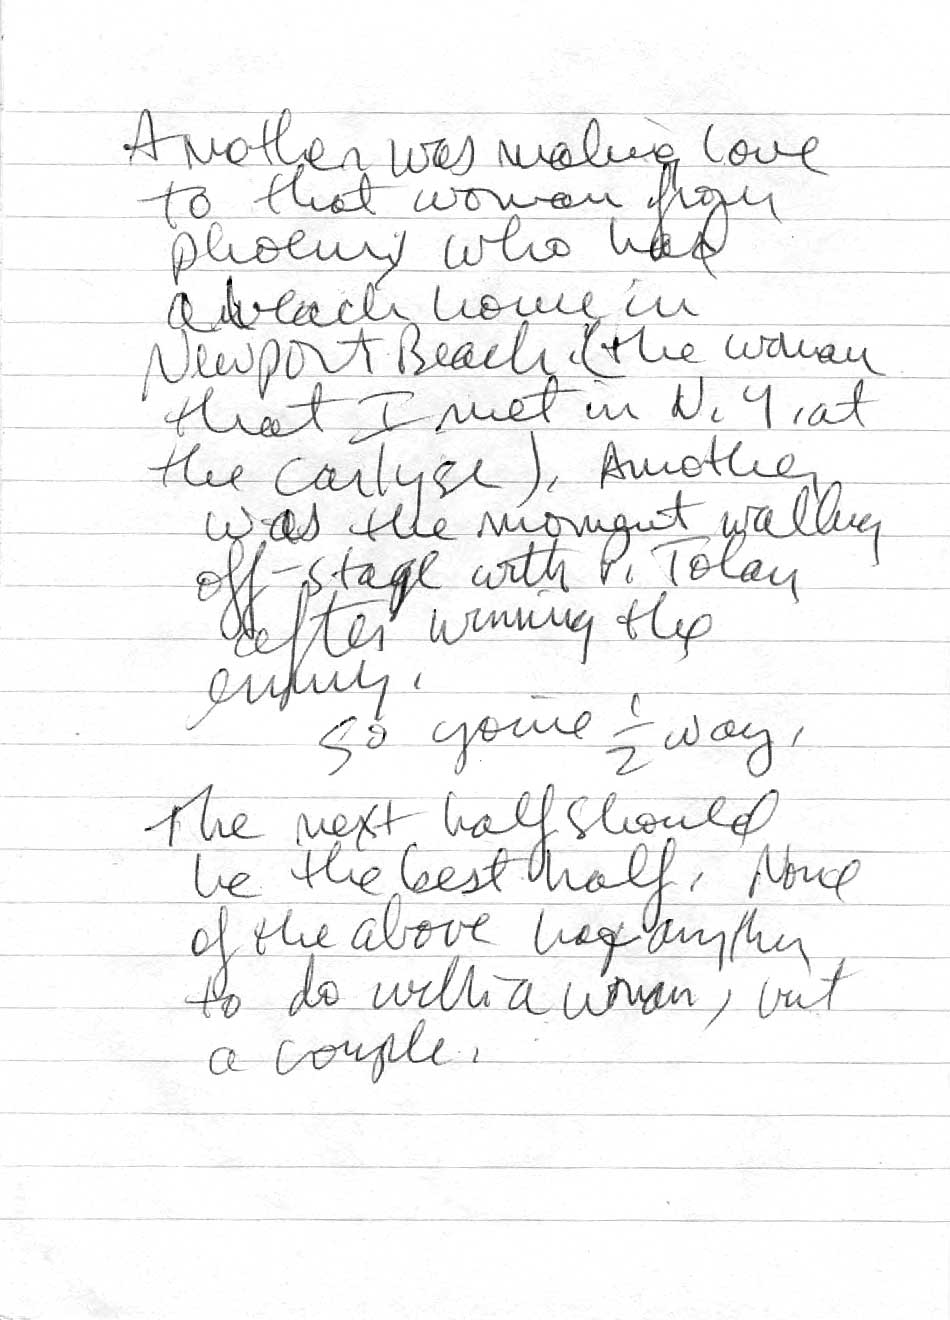 Another was making love
to that woman from
phoenix who had
a beach home in
Newport Beach. (the woman
that I met in N.Y. at
the Carlyse). Another
was the moment walking
off-stage with P. Tolan
after winning the
emmy.
So you're 1/2 way.
The next half should
be the best half. None
of the above has anything
to do with a woman, but
a couple.